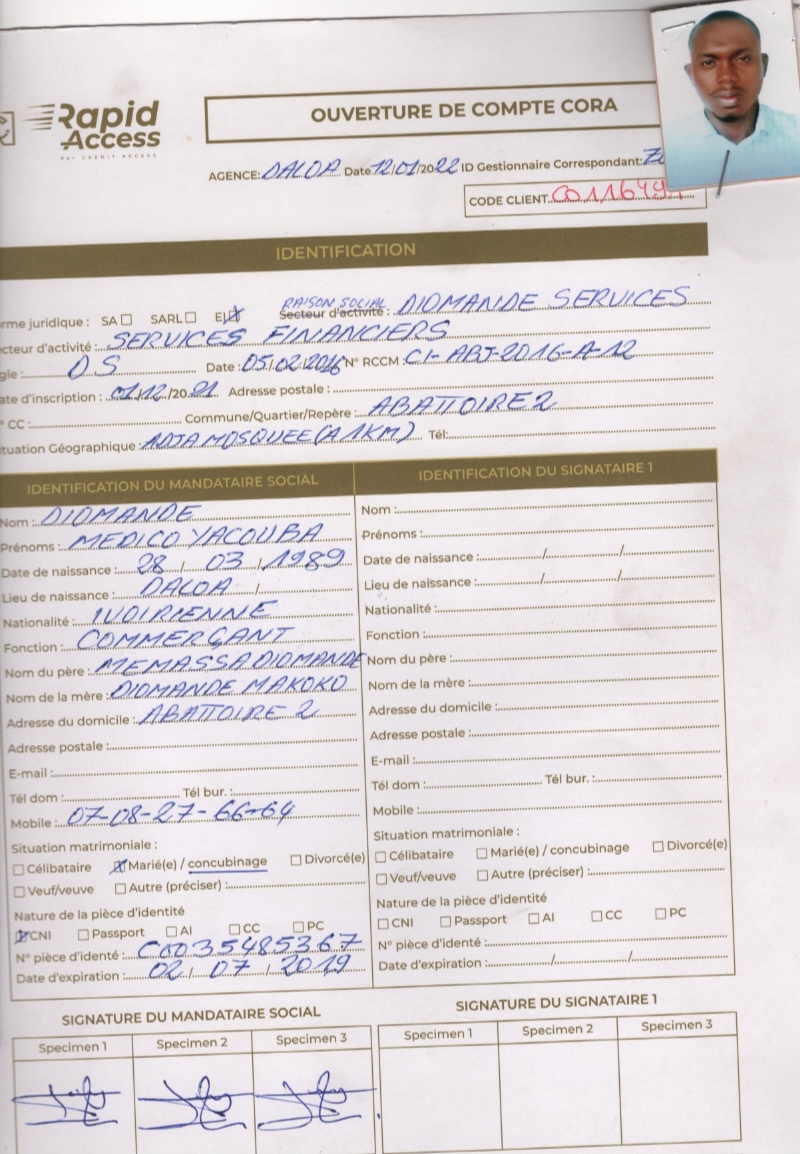 Rapid
Access
Par CREDIT ACCESS
OUVERTURE DE COMPTE CORA
AGENCE: DALOA Date 12/01/2022 ID Gestionnaire Correspondant:
CODE CLIENT CO11649
IDENTIFICATION
RAISON SOCIAL
rme juridique : SA SARL EI Secteur d'activité : DIOMANDE SERVICES
cteur d'activité : SERVICES FINANCIERS
gle : DS Date : 05/02/2016 N° RCCM : CI-ABJ-2016-A-12
ate d'inscription : 01/12/2021 Adresse postale :
° CC : Commune/Quartier/Repère : ABATTOIRE 2
ituation Géographique : ADJA MOSQUEE (A 1KM) Tél:
IDENTIFICATION DU MANDATAIRE SOCIAL
Nom : DIOMANDE
Prénoms : MEDICO YACOUBA
Date de naissance : 28 / 03 / 1989
Lieu de naissance : DALOA /
Nationalité : IVOIRIENNE
Fonction : COMMERÇANT
Nom du père : MEMASSA DIOMANDE
Nom de la mère : DIOMANDE MAKOKO
Adresse du domicile : ABATTOIRE 2
Adresse postale :
E-mail :
Tél dom : Tél bur. :
Mobile : 07-08-27-66-64
Situation matrimoniale :
Célibataire Marié(e) / concubinage Divorcé(e)
Veuf/veuve Autre (préciser) :
Nature de la pièce d'identité
CNI Passport AI CC PC
N° pièce d'identé : C0035485367
Date d'expiration : 02 / 07 / 2019
IDENTIFICATION DU SIGNATAIRE 1
Nom :
Prénoms :
Date de naissance : / /
Lieu de naissance : / /
Nationalité :
Fonction :
Nom du père :
Nom de la mère :
Adresse du domicile :
Adresse postale :
E-mail :
Tél dom : Tél bur. :
Mobile :
Situation matrimoniale :
Célibataire Marié(e) / concubinage Divorcé(e)
Veuf/veuve Autre (préciser) :
Nature de la pièce d'identité
CNI Passport AI CC PC
N° pièce d'identé :
Date d'expiration : / /
SIGNATURE DU MANDATAIRE SOCIAL
Specimen 1 Specimen 2 Specimen 3
SIGNATURE DU SIGNATAIRE 1
Specimen 1 Specimen 2 Specimen 3